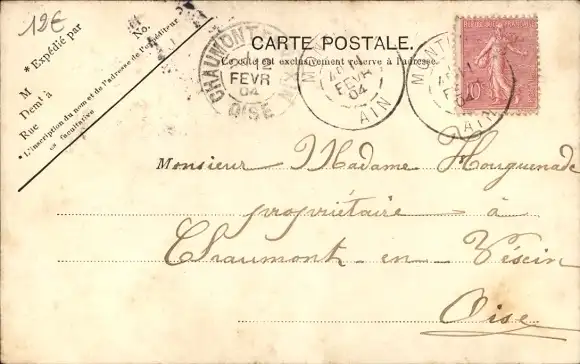 12€
* Expédié par
No.
M
Demt à
Rue
* L'inscription du nom et de l'adresse de l'expéditeur
est facultative
CARTE POSTALE.
Ce côté est exclusivement réservé à l'adresse.
CHAUMONT
FEVR
04
OISE
FEVR
04
AIN
MONT
04
AIN
10
Monsieur Madame Houguenade
propriétaire à
Chaumont-en-Vexin
Oise